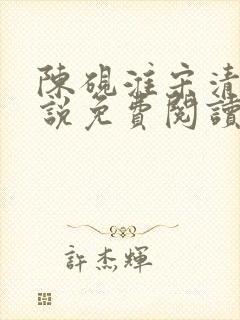 陳硯淮宋清
說免費閱讀
許杰輝